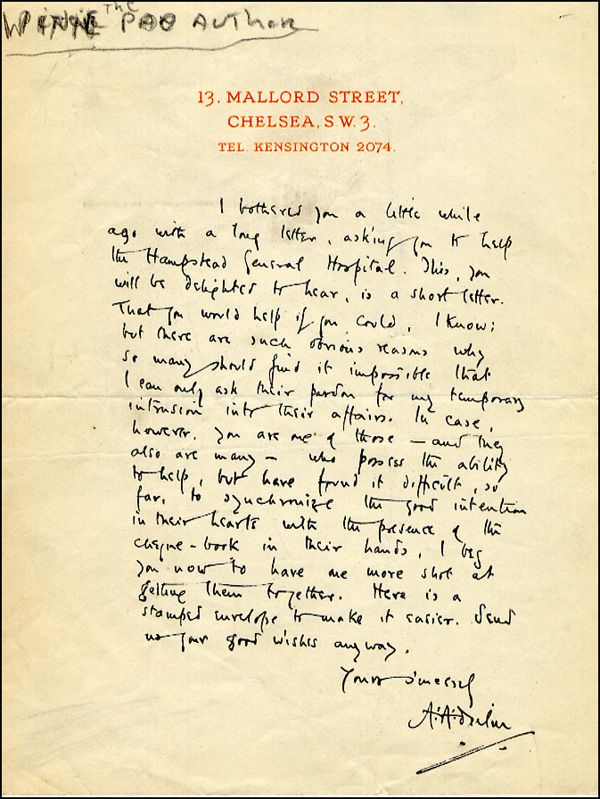 WINNIE the POO AUTHOR
13, MALLORD STREET,
CHELSEA, S.W.3.
TEL. KENSINGTON 2074.
I bothered you a little while
ago with a long letter, asking you to help
the Hampstead General Hospital. This, you
will be delighted to hear, is a short letter.
That you would help if you could, I know;
but there are such obvious reasons why
so many should find it impossible that
I can only ask their pardon for my temporary
intrusion into their affairs. In case,
however, you are one of those – and they
also are many – who possess the ability
to help, but have found it difficult, so
far, to synchronize the good intention
in their hearts with the presence of the
cheque-book in their hands, I beg
you now to have one more shot at
getting them together. Here is a
stamped envelope to make it easier. Send
us your good wishes anyway.
Yours sincerely
A.A. Milne